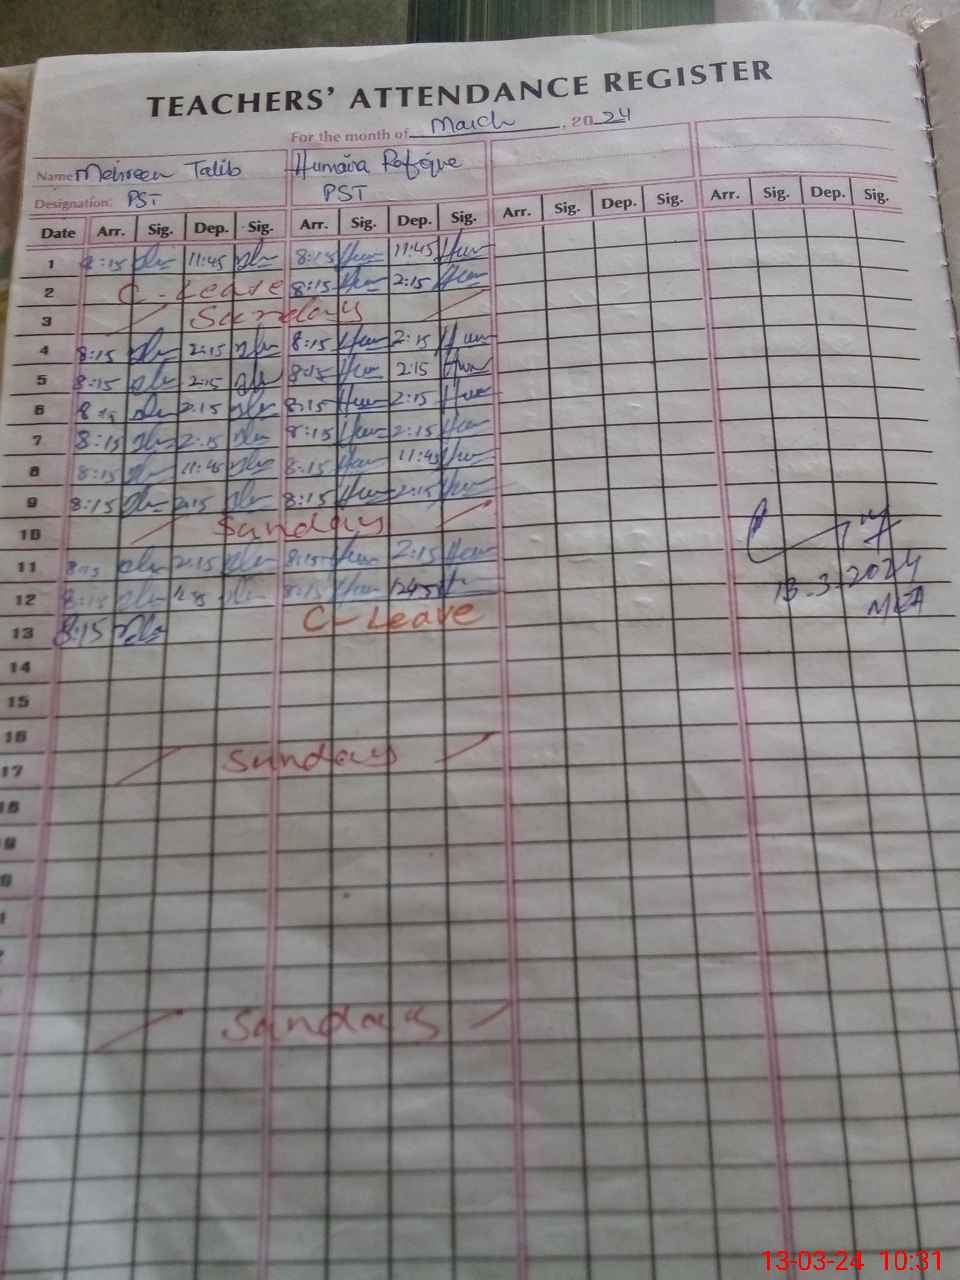 TEACHERS' ATTENDANCE REGISTER
For the month of March, 2024
Name Mehreen Talib Humaira Rafique
Designation. PST PST
Date Arr. Sig. Dep. Sig. Arr. Sig. Dep. Sig. Arr. Sig. Dep. Sig. Arr. Sig. Dep. Sig.
1 8:15 11:45 8:15 Hum 11:45 Hum
2 C-Leave 8:15 Hum 2:15 Hum
3 Sunday
4 8:15 2:15 8:15 Hum 2:15 Hum
5 8:15 2:15 8:15 Hum 2:15 Hum
6 8:15 2:15 8:15 Hum 2:15 Hum
7 8:15 2:15 8:15 Hum 2:15 Hum
8 8:15 11:45 8:15 Hum 11:45 Hum
9 8:15 2:15 8:15 Hum 2:15 Hum
10 Sunday
11 8:15 2:15 8:15 Hum 2:15 Hum
12 8:15 8:15 Hum
13 8:15 C-Leave
13-3-2024
MEA
14
15
16
17 Sunday
18
Sunday
13-03-24 10:31